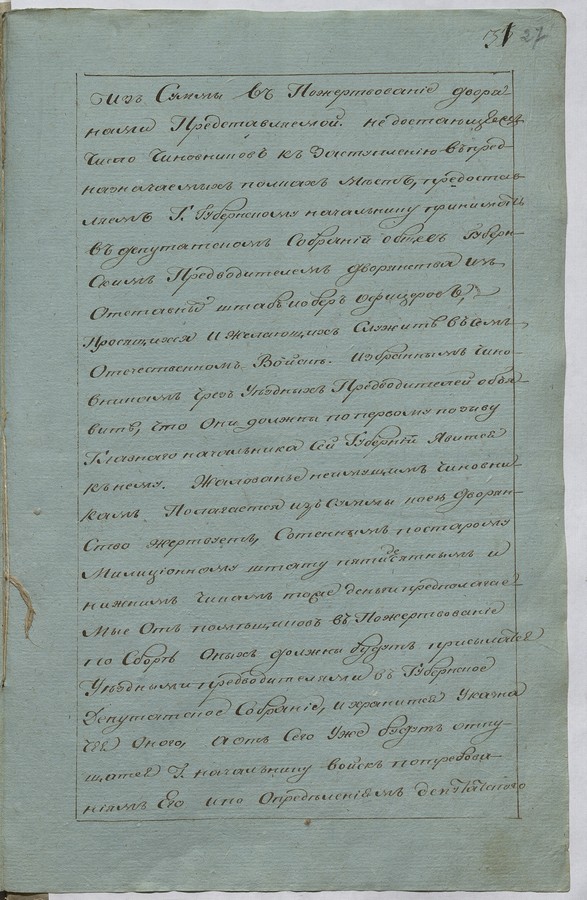 31 27
Изъ Суммы въ Пожертвованіе дворя-
нами Представляемой. недостающее
Число Чиновниковъ къ Заступленію въ пред-
назначаемыхъ полкахъ мѣстъ, предостав-
ляемъ Г. Губернскому начальнику принимать
въ депутатскомъ Собраніи обще съ Губерн-
скимъ Предводителемъ дворянства изъ
Отставныхъ штабъ и оберъ офицеровъ,
Просящихся и желающихъ Служить въ семъ
Отечественномъ Войскѣ. Избраннымъ Чино-
вникамъ Чрезъ Уѣздныхъ Предводителей объя-
вить, что Они должны по первому позыву
Главнаго начальника сей Губерніи Явится
къ нему. Жалованье неимущимъ Чиновни-
камъ Полагается изъ Суммы коею дворян-
ство жертвуетъ, Сотеннымъ по старому
Милиціонному штату пятидесятнымъ и
нижнимъ Чинамъ тоже деньги предполагае-
мые Отъ помѣщиковъ въ Пожертвованіе
по Сборѣ Оныхъ должны будутъ присылатся
Уѣздными предводителями въ Губернское
Депутатское Собраніе, и хранится Указна
чея Оного, а отъ Сего Уже будутъ отпу-
щатся Г. начальнику войскъ по требова-
ніямъ Его и по Опредѣленіямъ депутатского